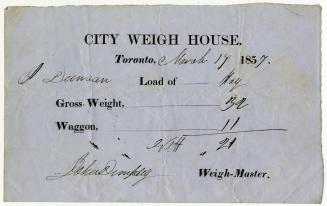 CITY WEIGH HOUSE.
Toronto, March 17 1857.
J Duncan Load of Hay
Gross Weight, 32
Waggon, 11
Nett " 21
John Dempsey Weigh-Master.